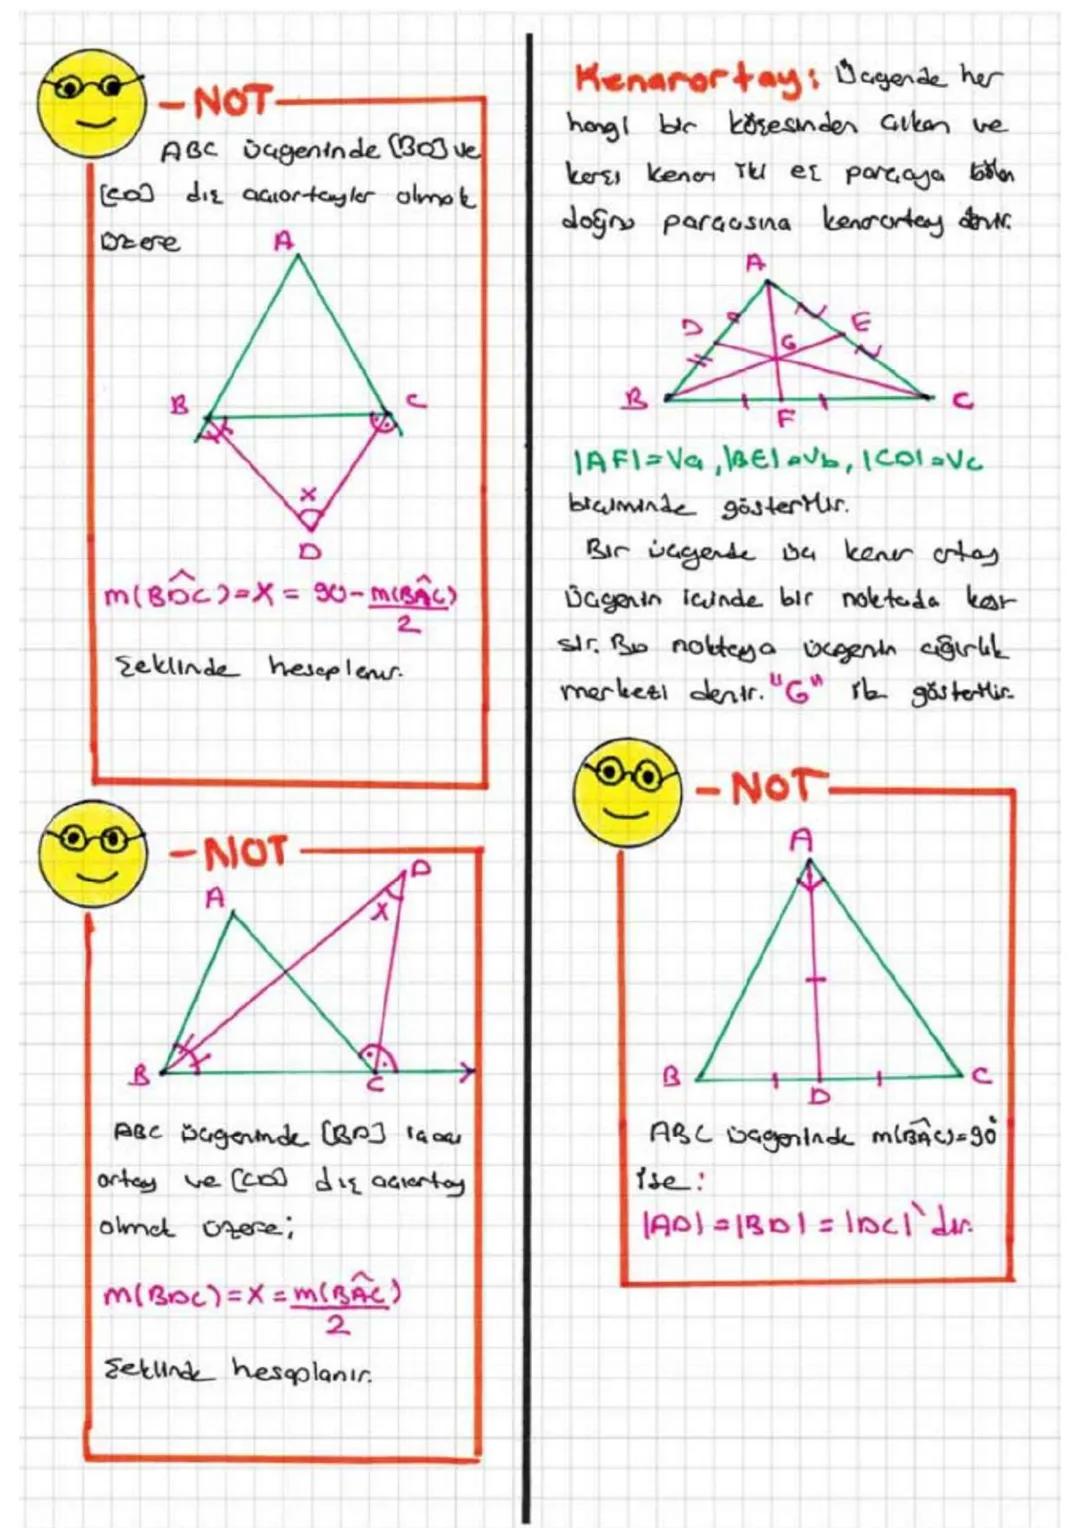 - NOT
ABC üçgeninde [BD] ve
[CD] dış açıortaylar olmak
üzere
A
B
C
x
D
m(BDC)=x= 90-m(BAC)
2
şeklinde hesaplanır.
- NOT
A
D
x
B
C
ABC üçgeninde [BD] iç açı
ortay ve [CD] dış açıortay
olmak üzere;
m(BDC)=x=m(BAC)
2
şeklinde hesaplanır.
Kenarortay: Üçgende her
hangi bir köşesinden çıkan ve
karşı kenarı iki eş parçaya bölen
doğru parçasına kenarortay denir.
A
D
E
G
B
F
C
|AF|=Va, |BE|=Vb, |CD|=Vc
biçiminde gösterilir.
Bir üçgende üç kenar ortay
üçgenin içinde bir noktada kesi
şir. Bu noktaya üçgenin ağırlık
merkezi denir. "G" ile gösterilir.
- NOT
A
B
D
C
ABC üçgeninde m(BAC)=90°
ise:
|AD|=|BD|=|DC|'dır.